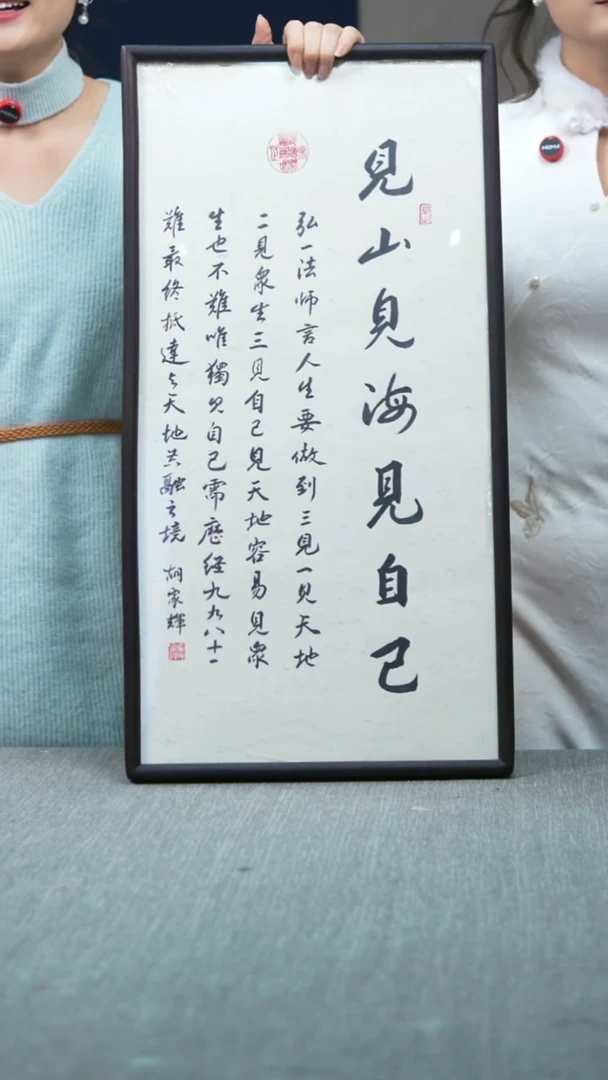 見山見海見自己
弘一法師言人生要做到三見一見天地
二見眾生三見自己見天地容易見眾
生也不難唯獨見自己需歷经九九八十一
難最终抵達与天地共融之境 胡家輝